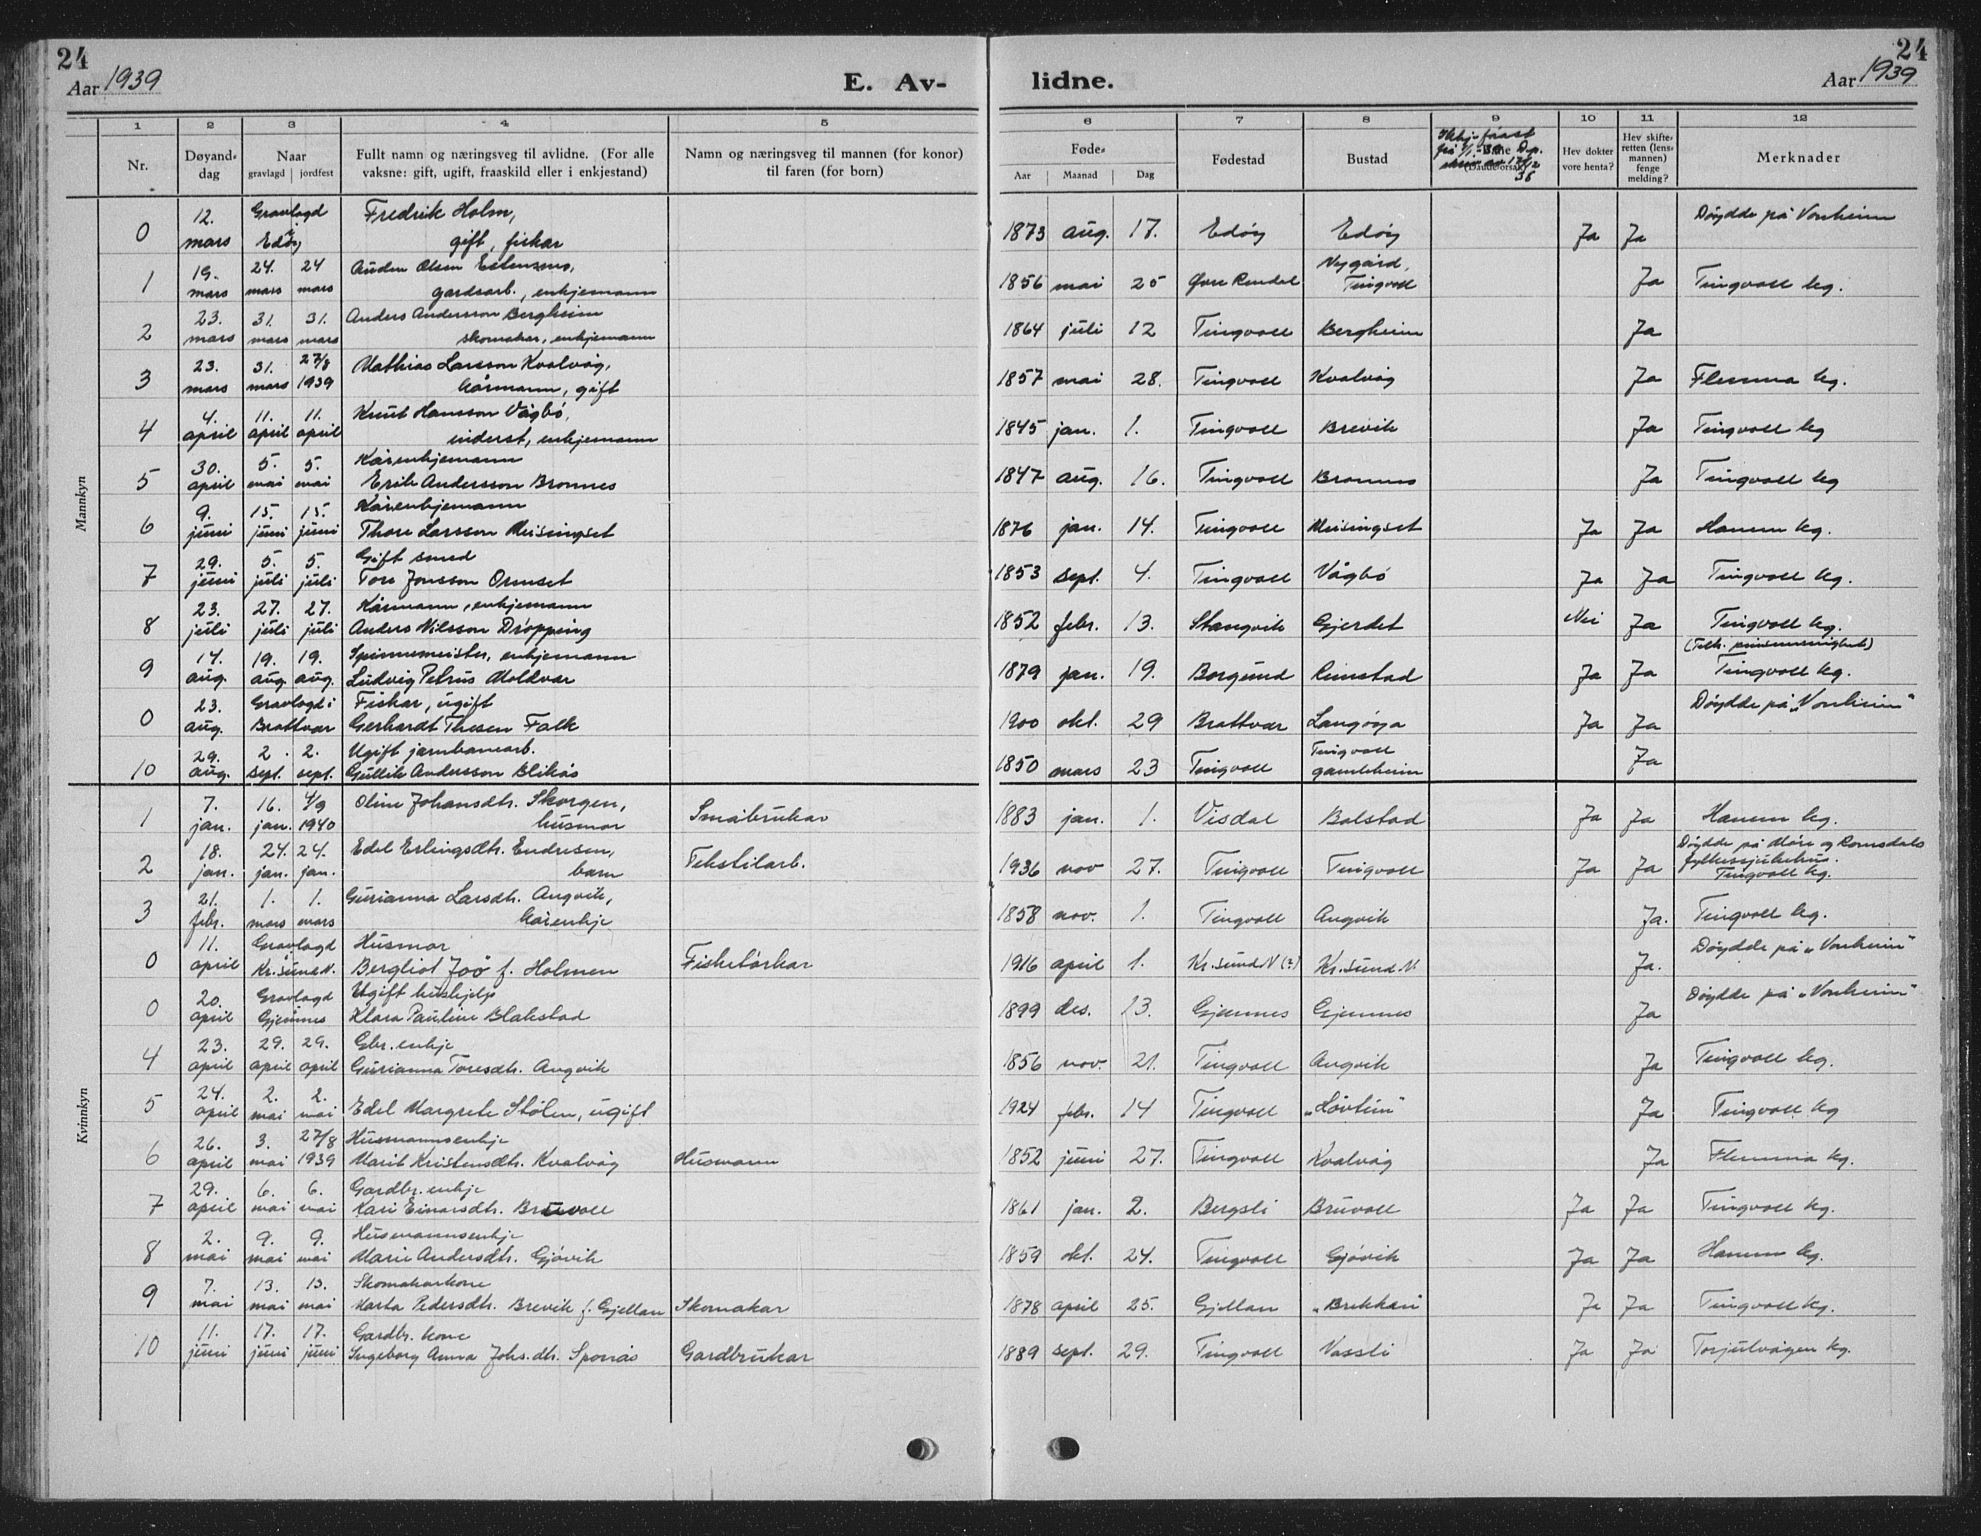 24
Aar 1939
E. Av-
lidne.
24
Aar 1939
1 2 3 4 5 6 7 8 9 10 11 12
Nr.
Døyand-dag
Naar gravlagd jordfest
Fullt namn og næringsveg til avlidne. (For alle vaksne: gift, ugift, fraaskild eller i enkjestand)
Namn og næringsveg til mannen (for konor) til faren (for born)
Føde- Aar Maanad Dag
Fødestad
Bustad
(Daudeorsak)
Hev dokter vore henta?
Hev skifteretten (lensmannen) fenge melding?
Merknader
Mannkyn
0 12. mars Gravlagd Edøy Fredrik Holm, gift, fiskar 1873 aug. 17. Edøy Edøy Ja Ja Døydde på Vonheim
1 19. mars 24. mars 24 mars Auden Olsen gardsarb., enkjemann 1856 mai 25 Øvre Rendal Nygård, Tingvoll Ja Tingvoll kg.
2 23. mars 31. mars 31. mars Anders Andersson Bergheim skomakar, enkjemann 1864 juli 12 Tingvoll Bergheim Ja
3 23. mars 31. mars 27/8 1939 Mathias Larsson Kvalvåg, kårmann, gift 1857 mai 28. Tingvoll Kvalvåg Ja Flemma kg.
4 4. april 11. april 11. april Knut Hansson Vågbø, inderst, enkjemann 1845 jan. 1. Tingvoll Brevik Ja Tingvoll kg
5 30. april 5. mai 5. mai Kårenkjemann Erik Andersson Bronnes 1847 aug. 16. Tingvoll Bronnes Ja Tingvoll kg
6 9. juni 15. juni 15. juni Kårenkjemann Thore Larsson Meisingset 1876 jan. 14. Tingvoll Meisingset Ja Ja Hanem kg.
7 29. juni 5. juli 5. juli Gift smed Tore Jonsson Ormset 1853 sept. 4. Tingvoll Vågbø Ja Ja Tingvoll kg.
8 23. juli 27. juli 27. juli Kårmann, enkjemann Anders Nilsson Drøpping 1852 febr. 13. Stangvik Gjerdet Nei Ja Tingvoll kg.
9 14. aug. 19. aug. 19. aug. Spinnemeister, enkjemann Ludvig Petrus Moldvær 1879 jan. 19. Borgund Rimstad Ja Ja (Tilh. pinsemenigheit) Tingvoll kg.
0 23. aug. Gravlagd i Brattvær Fiskar, ugift Gerhardt Theen Falk 1900 okt. 29 Brattvær Langøya Ja Ja Døydde på „Vonheim"
10 29. aug. 2. sept. 2. sept. Ugift jarnbanearb. Gullik Andersson Blikås 1850 mars 23 Tingvoll Tingvoll gamleheim Ja
Kvinnkyn
1 7. jan. 16. jan. 4/9 1940 Oline Johansdtr. Skorgen, husmor Småbrukar 1883 jan. 1. Visdal Bolstad Ja Ja Hanem kg.
2 18. jan. 24. jan. 24. jan. Edel Erlingsdtr. Endresen, barn Tekstilarb. 1936 nov 27. Tingvoll Tingvoll Ja Ja Døydde på Møre og Romsdals fylkessjukehus. Tingvoll kg.
3 21. febr. 1. mars 1. mars Gurianna Larsdtr. Angvik, kårenkje 1858 nov. 1. Tingvoll Angvik Ja. Tingvoll kg.
0 11. april Gravlagd Kr.sund N. Husmor Bergliot Joø f. Holmen Fisketørkar 1916 april 1. Kr.sund N (?) Kr.sund N Ja. Døydde på „Vonheim"
0 20. april Gravlagd Gjemnes Ugift hushjelp Klara Pauline Blakstad 1899 des. 13. Gjemnes Gjemnes Ja Døydde på „Vonheim"
4 23. april 29. april 29. april Gbr. enkje Gurianna Toresdtr. Angvik 1856 nov. 21. Tingvoll Angvik Ja Tingvoll kg.
5 24. april 2. mai 2. mai Edel Margrete Stølen, ugift 1924 febr. 14 Tingvoll Ja Tingvoll kg
6 26. april 3. mai 27/8 1939 Husmannsenkje Marit Kristensdtr. Kvalvåg Husmann 1852 juni 27. Tingvoll Kvalvåg Ja Flemma kg.
7 29. april 6. mai 6. mai Gardbr. enkje Kari Einarsdtr. Bruvoll 1861 jan. 2. Bergsli Bruvoll Ja Ja Tingvoll kg.
8 2. mai 9. mai 9. mai Husmannsenkje Marie Andersdtr. Gjøvik 1859 okt. 24. Tingvoll Gjøvik Ja Ja Hanem kg.
9 7. mai 13. mai 13. mai Skomakarkone Marta Pedersdtr. Brevik f. Gjellan Skomakar 1878 april 25. Gjellan „Brekkan" Ja Ja Tingvoll kg.
10 11. juni 17. juni 17. juni Gardbr. kone Ingeborg Anna Johs.dtr. Sponås Gardbrukar 1889 sept. 29. Tingvoll Vassli Ja Ja Torjulvågen kg.